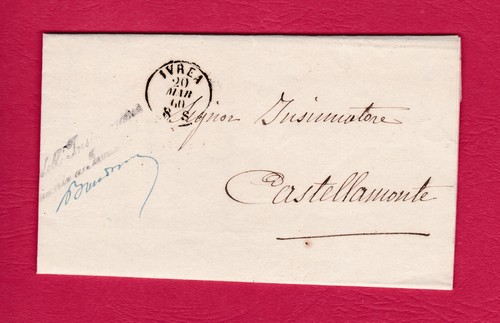 IVREA
20
MAR
60
8 S
Signor Insinuatore
Castellamonte